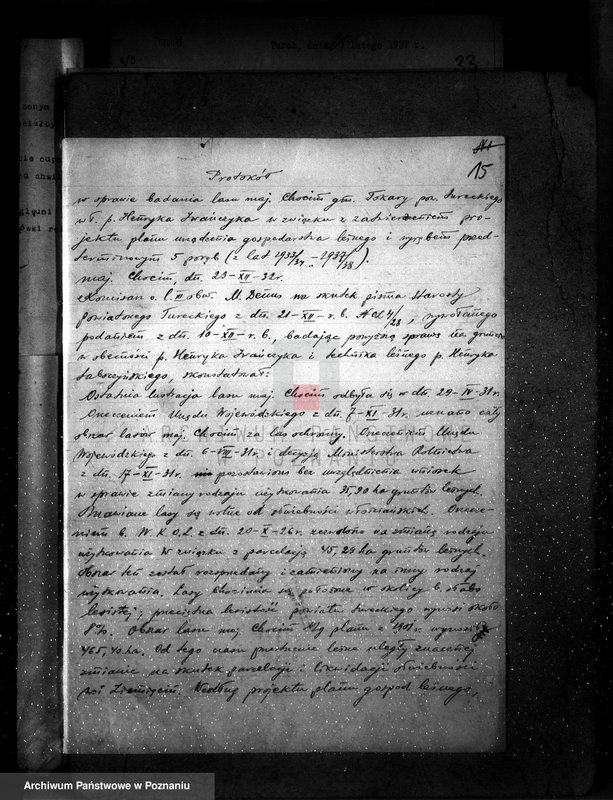 Turek, dnia lutego 1937 r.
4/5
33
15
Protokół
w sprawie badania lasu maj. Chocim gm. Tokary pow. tureckiego
wł. p. Henryka Iwańczyka w związku z zatwierdzeniem pro-
jektu planu urządzenia gospodarstwa leśnego i wyrębem przed-
terminowym 5 poręb (z lat 1933/34 – 1937/38).
maj. Chocim, dn. 23-XII-32r.
Komisarz o. l. III obw. M. Denus na skutek pisma Starosty
Powiatowego Tureckiego z dn. 21-XII-r. b. N OL 4/28, wywołanego
podaniem z dn. 10-XII-r. b., badając powyższą sprawę na gruncie
w obecności p. Henryka Iwańczyka i technika leśnego p. Henryka
skonstatował:
Ostatnia lustracja lasu maj. Chocim odbyła się w dn. 29-IV-31r.
Orzeczeniem Urzędu Wojewódzkiego z dn. 7-XI-31r. uznano cały
obszar lasów maj. Chocim za las ochronny. Orzeczeniem Urzędu
Wojewódzkiego z dn. 6-VIII-31r. i decyzją Ministerstwa Rolnictwa
z dn. 17-XI-31r. pozostawiono bez uwzględnienia wniosek
w sprawie zmiany rodzaju użytkowania 35,90 ha gruntów leśnych.
Omawiane lasy są wolne od służebności włościańskich. Orzecze-
niem b. W. K. O. L. z dn. 20-X-26r. zezwolono na zmianę rodzaju
użytkowania w związku z parcelacją 45,29 ha gruntów leśnych.
Obszar ten został rozsprzedany i zamieniony na inny rodzaj
użytkowania. Lasy Chocimia są położone w okolicy b. słabo
lesistej; przeciętna lesistość powiatu tureckiego wynosi około
8%. Obszar lasu maj. Chocim wg planu z 1901 r. wynosił
465,40 ha. Od tego czasu przestrzenie leśne uległy znacznej
zmianie na skutek parcelacji i likwidacji służebności
wsi Ziemięcin. Według projektu planu gospod. leśnego,
Archiwum Państwowe w Poznaniu